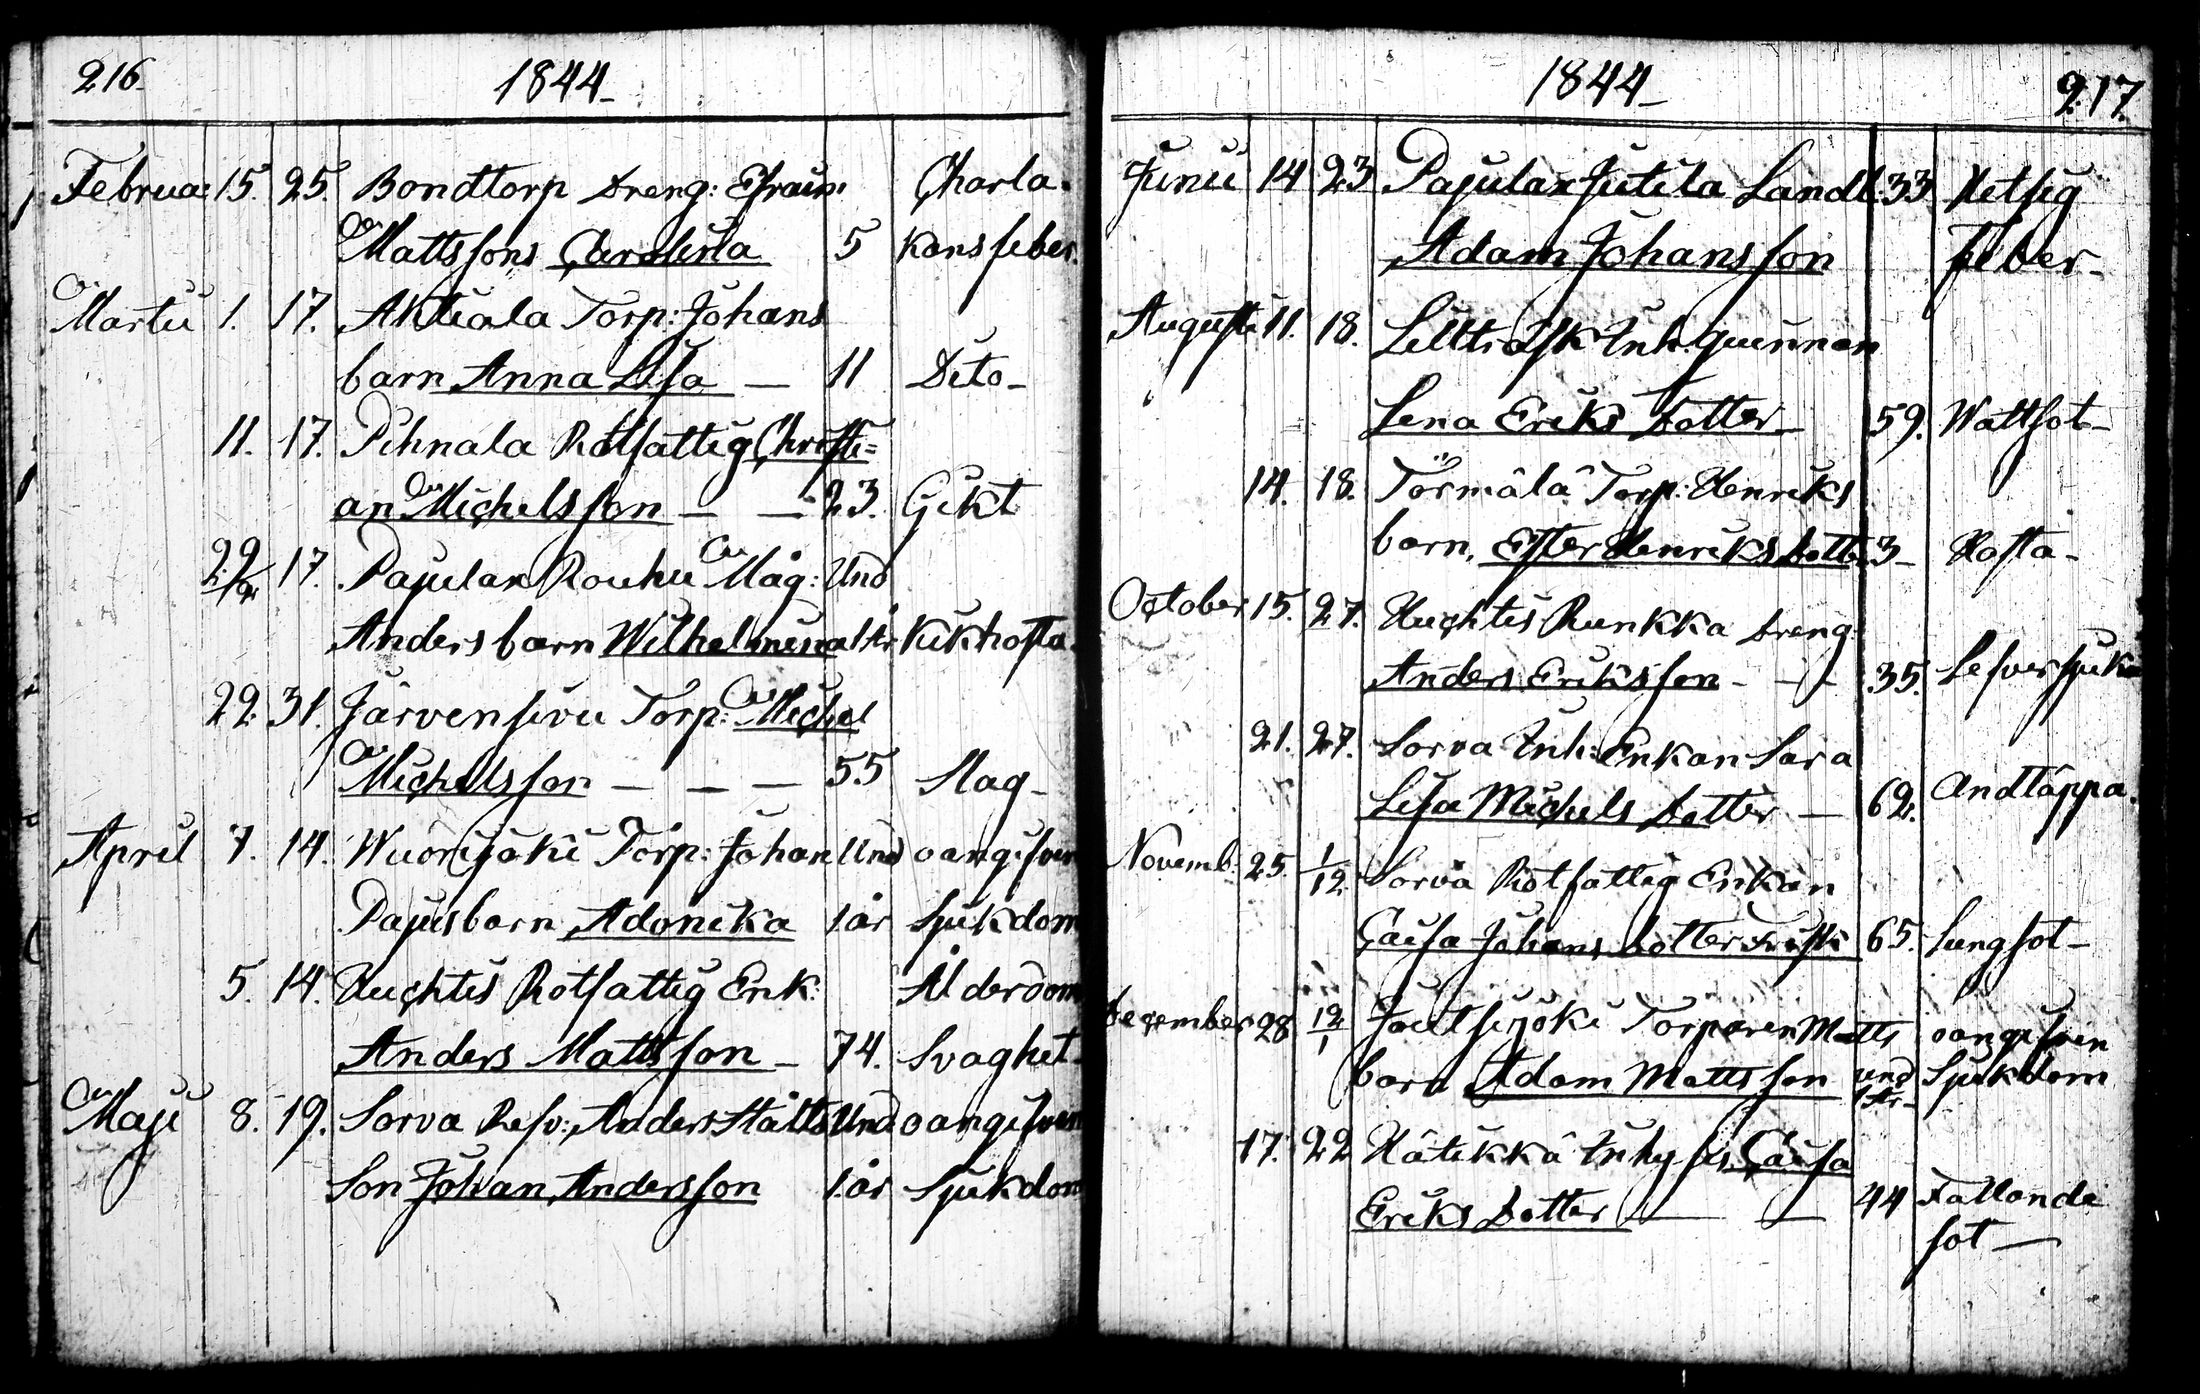 216.
1844_
Februa: 15. 25. Bondtorp Dreng: Efraim Charla-
Mattssons Carolina 5 kansfeber.
Martii 1. 17. Aktiala Torp: Johans
barn Anna Lisa — 11 Dito-
11. 17. Pihnala Rotfattig Christi=
an Michelsson — — 23. Gikt
22/2 17. Pajulax Rouhu Måg: Und
Anders barn Wilhelmina 1 År Kikhosta.
22. 31. Järvensivu Torp: Michel
Michelsson — — — 55 Slag-
April 7. 14. Wuorijoki Torp: Johan Und oangifven
Pajus barn Adonika 1 år Sjukdom
5. 14. Huchtis Rotfattig Enk: Ålderdom
Anders Mattsson — 74. Svaghet-
Maji 8. 19. Sorva Resv: Anders Ståhls Und oangifven
Son Johan Andersson 1 år Sjukdom
1844_
217.
Junii 14 23 Pajulax Jutila Landb: 33 Hetsig
Adam Johansson Feber-
Augusti 11. 18. Inh: quinnan
Lena Eriks Dotter- 59. Wattsot-
14. 18. Törmälä Torp: Henriks
barn, Ester Henriks Dotter 3- Hosta-
October 15. 27. Huchtis Runkka Dreng:
Anders Eriksson - - - 35. Lefversjuka
21. 27. Sorva Inh: Enkan Sara
Lisa Michels Dotter — 62. Andtäppa.
Novemb: 25 1/12. Sorva Rotfattig Enkan
Caisa Johans Dotter Frisk 65. Lungsot-
December 28 12/1 Joutsijoki Torparen Matts oangifven
barn Adam Mattsson und 1 År- Sjukdom
17. 22 Hätikkä Inhyses Caisa
Eriks Dotter — — 44 Fallande
sot —